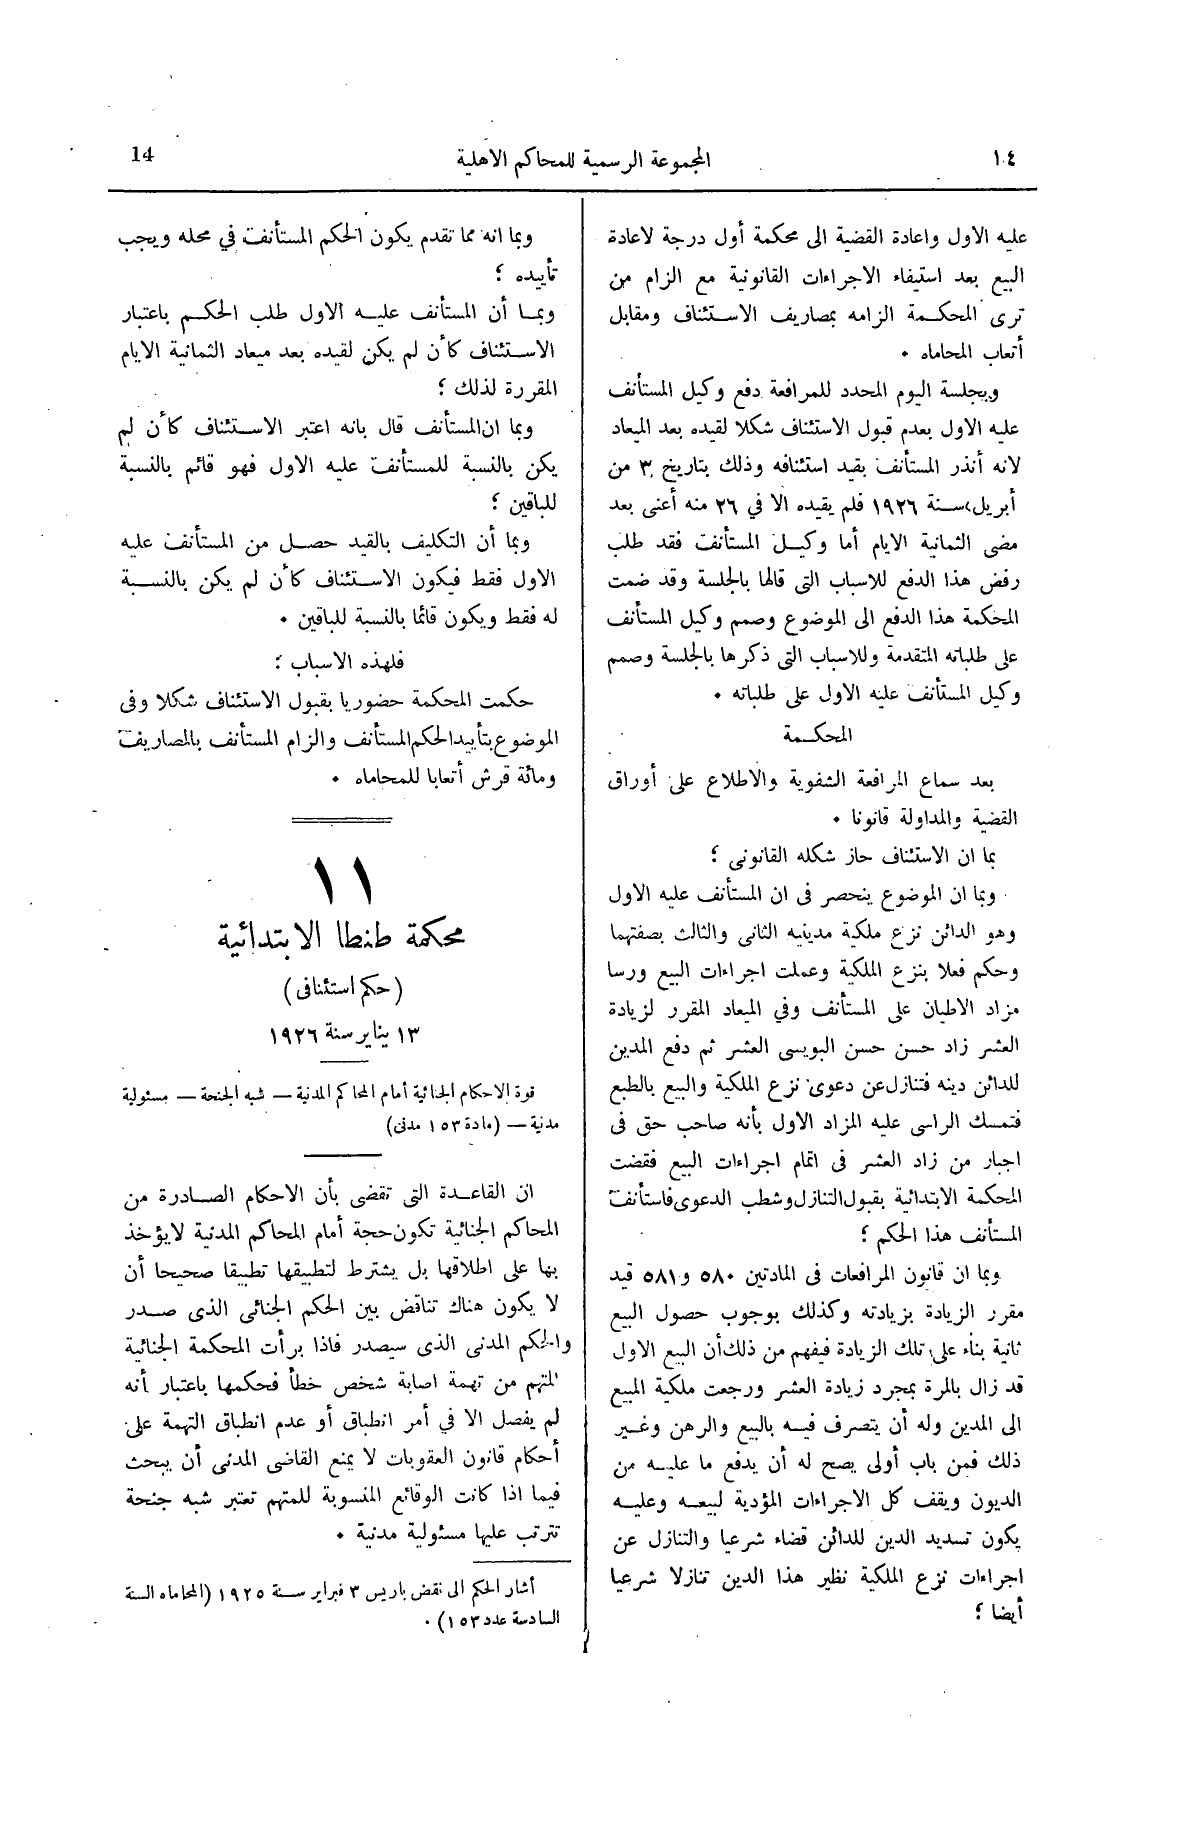 ١٤
المجموعة الرسمية للمحاكم الاهلية
14
عليه الاول واعادة القضية الى محكمة أول درجة لاعادة
البيع بعد استيفاء الاجراءات القانونية مع الزام من
ترى المحكمة الزامه بمصاريف الاستئناف ومقابل
أتعاب المحاماه .
وبجلسة اليوم المحدد للمرافعة دفع وكيل المستأنف
عليه الاول بعدم قبول الاستئناف شكلا لقيده بعد الميعاد
لانه أنذر المستأنف بقيد استئنافه وذلك بتاريخ ٣ من
أبريل سنة ١٩٢٦ فلم يقيده الا في ٢٦ منه أعنى بعد
مضى الثمانية الايام أما وكيل المستأنف فقد طلب
رفض هذا الدفع للاسباب التى قالها بالجلسة وقد ضمت
المحكمة هذا الدفع الى الموضوع وصمم وكيل المستأنف
على طلباته المتقدمة وللاسباب التى ذكرها بالجلسة وصمم
وكيل المستأنف عليه الاول على طلباته .
المحكمة
بعد سماع المرافعة الشفوية والاطلاع على أوراق
القضية والمداولة قانونا .
بما ان الاستئناف حاز شكله القانونى ؛
وبما ان الموضوع ينحصر فى ان المستأنف عليه الاول
وهو الدائن نزع ملكية مدينيه الثانى والثالث بصفتهما
وحكم فعلا بنزع الملكية وعملت اجراءات البيع ورسا
مزاد الاطيان على المستأنف وفي الميعاد المقرر لزيادة
العشر زاد حسن حسن البويسى العشر ثم دفع المدين
للدائن دينه فتنازل عن دعوى نزع الملكية والبيع بالطبع
فتمسك الراسى عليه المزاد الاول بأنه صاحب حق فى
اجبار من زاد العشر فى اتمام اجراءات البيع فقضت
المحكمة الابتدائية بقبول التنازل وشطب الدعوى فاستأنف
المستأنف هذا الحكم ؛
وبما ان قانون المرافعات فى المادتين ٥٨٠ و٥٨١ قيد
مقرر الزيادة بزيادته وكذلك بوجوب حصول البيع
ثانية بناء على تلك الزيادة فيفهم من ذلك أن البيع الاول
قد زال بالمرة بمجرد زيادة العشر ورجعت ملكية المبيع
الى المدين وله أن يتصرف فيه بالبيع والرهن وغير
ذلك فمن باب أولى يصح له أن يدفع ما عليه من
الديون ويقف كل الاجراءات المؤدية لبيعه وعليه
يكون تسديد الدين للدائن قضاء شرعيا والتنازل عن
اجراءات نزع الملكية نظير هذا الدين تنازلا شرعيا
أيضا ؛
وبما انه مما تقدم يكون الحكم المستأنف في محله ويجب
تأييده ؛
وبما أن المستأنف عليه الاول طلب الحكم باعتبار
الاستئناف كأن لم يكن لقيده بعد ميعاد الثمانية الايام
المقررة لذلك ؛
وبما ان المستأنف قال بانه اعتبر الاستئناف كأن لم
يكن بالنسبة للمستأنف عليه الاول فهو قائم بالنسبة
للباقين ؛
وبما أن التكليف بالقيد حصل من المستأنف عليه
الاول فقط فيكون الاستئناف كأن لم يكن بالنسبة
له فقط ويكون قائما بالنسبة للباقين .
فلهذه الاسباب :
حكمت المحكمة حضوريا بقبول الاستئناف شكلا وفى
الموضوع بتأييد الحكم المستأنف والزام المستأنف بالمصاريف
ومائة قرش أتعابا للمحاماه .
١١
محكمة طنطا الابتدائية
(حكم استئنافى)
١٣ يناير سنة ١٩٢٦
قوة الاحكام الجنائية أمام المحاكم المدنية — شبه الجنحة — مسئولية
مدنية — (مادة ١٥٣ مدنى)
ان القاعدة التى تقضى بأن الاحكام الصادرة من
المحاكم الجنائية تكون حجة أمام المحاكم المدنية لا يؤخذ
بها على اطلاقها بل يشترط لتطبيقها تطبيقا صحيحا أن
لا يكون هناك تناقض بين الحكم الجنائى الذى صدر
والحكم المدنى الذى سيصدر فاذا برأت المحكمة الجنائية
المتهم من تهمة اصابة شخص خطأ فحكمها باعتبار أنه
لم يفصل الا في أمر انطباق أو عدم انطباق التهمة على
أحكام قانون العقوبات لا يمنع القاضى المدنى أن يبحث
فيما اذا كانت الوقائع المنسوبة للمتهم تعتبر شبه جنحة
تترتب عليها مسئولية مدنية .
أشار الحكم الى نقض باريس ٣ فبراير سنة ١٩٢٥ (المحاماه السنة
السادسة عدد ١٥٣) .